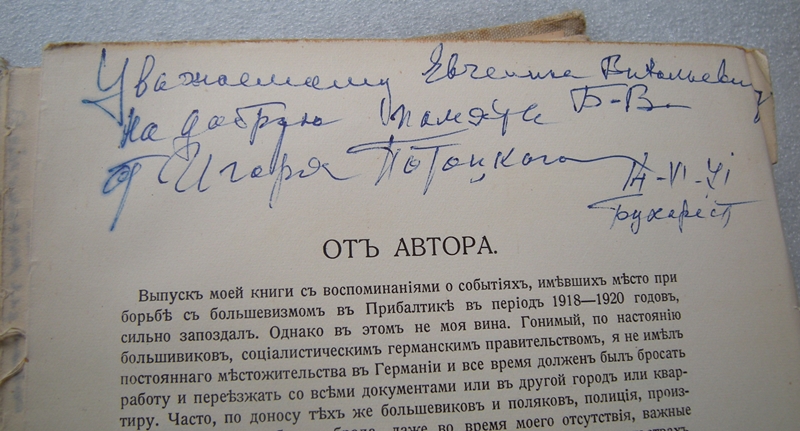 Уважаемому Евгению Витальевичу
на добрую память Б-В
от Игоря Потоцкого
VI-71
Бухарест
ОТЪ АВТОРА.
Выпускъ моей книги съ воспоминаніями о событіяхъ, имѣвшихъ мѣсто при
борьбѣ съ большевизмомъ въ Прибалтикѣ въ періодъ 1918—1920 годовъ,
сильно запоздалъ. Однако въ этомъ не моя вина. Гонимый, по настоянію
большивиковъ, соціалистическимъ германскимъ правительствомъ, я не имѣлъ
постояннаго мѣстожительства въ Германіи и все время долженъ былъ бросать
работу и переѣзжать со всѣми документами или въ другой городъ или квар-
тиру. Часто, по доносу тѣхъ же большевиковъ и поляковъ, полиція, произ-
даже во время моего отсутствія, важные